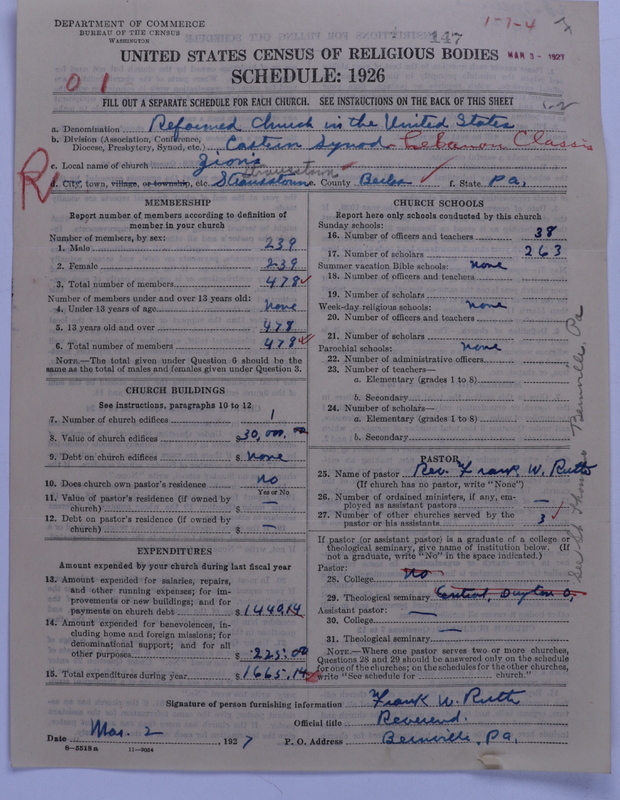 DEPARTMENT OF COMMERCE
BUREAU OF THE CENSUS
WASHINGTON
147
1-7-4
UNITED STATES CENSUS OF RELIGIOUS BODIES
MAR 5 - 1927
SCHEDULE: 1926
0 1
FILL OUT A SEPARATE SCHEDULE FOR EACH CHURCH. SEE INSTRUCTIONS ON THE BACK OF THIS SHEET
a. Denomination Reformed Church in the United States
b. Division (Association, Conference, Diocese, Presbytery, Synod, etc.) Eastern Synod - Lebanon Classis
c. Local name of church Zions
Strausstown
R
d. City, town, village, or township, etc. Strausstown County Berks f. State Pa.
MEMBERSHIP
Report number of members according to definition of member in your church
Number of members, by sex:
1. Male 239
2. Female 239
3. Total number of members 478
Number of members under and over 13 years old:
4. Under 13 years of age None
5. 13 years old and over 478
6. Total number of members 478
NOTE.—The total given under Question 6 should be the same as the total of males and females given under Question 3.
CHURCH BUILDINGS
See instructions, paragraphs 10 to 12
7. Number of church edifices 1
8. Value of church edifices $30,000.00
9. Debt on church edifices $ None
10. Does church own pastor's residence? No
Yes or No
11. Value of pastor's residence (if owned by church) $ —
12. Debt on pastor's residence (if owned by church) $ —
EXPENDITURES
Amount expended by your church during last fiscal year
13. Amount expended for salaries, repairs, and other running expenses; for improvements or new buildings; and for payments on church debt $1440.14
14. Amount expended for benevolences, including home and foreign missions; for denominational support; and for all other purposes $ 225.00
15. Total expenditures during year $1665.14
CHURCH SCHOOLS
Report here only schools conducted by this church
Sunday schools:
16. Number of officers and teachers 38
17. Number of scholars 263
Summer vacation Bible schools: None
18. Number of officers and teachers
19. Number of scholars
Week-day religious schools: None
20. Number of officers and teachers
21. Number of scholars
Parochial schools: None
22. Number of administrative officers
23. Number of teachers—
a. Elementary (grades 1 to 8)
b. Secondary
24. Number of scholars—
a. Elementary (grades 1 to 8)
b. Secondary
PASTOR
25. Name of pastor Rev. Frank W. Ruth
(If church has no pastor, write "None")
26. Number of ordained ministers, if any, employed as assistant pastors —
27. Number of other churches served by the pastor or his assistants 3
If pastor (or assistant pastor) is a graduate of a college or theological seminary, give name of institution below. (If not a graduate, write "No" in the space indicated.)
Pastor:
28. College No
29. Theological seminary Central, Dayton O,
Assistant pastor:
30. College —
31. Theological seminary —
NOTE.—Where one pastor serves two or more churches, Questions 28 and 29 should be answered only on the schedule for one of the churches; on the schedules for the other churches, write "See schedule for church."
Bernville, Pa
Signature of person furnishing information Frank W. Ruth
Official title Reverend.
Date Mar. 2, 1927
P. O. Address Bernville, Pa.
8—5518a 11—9054